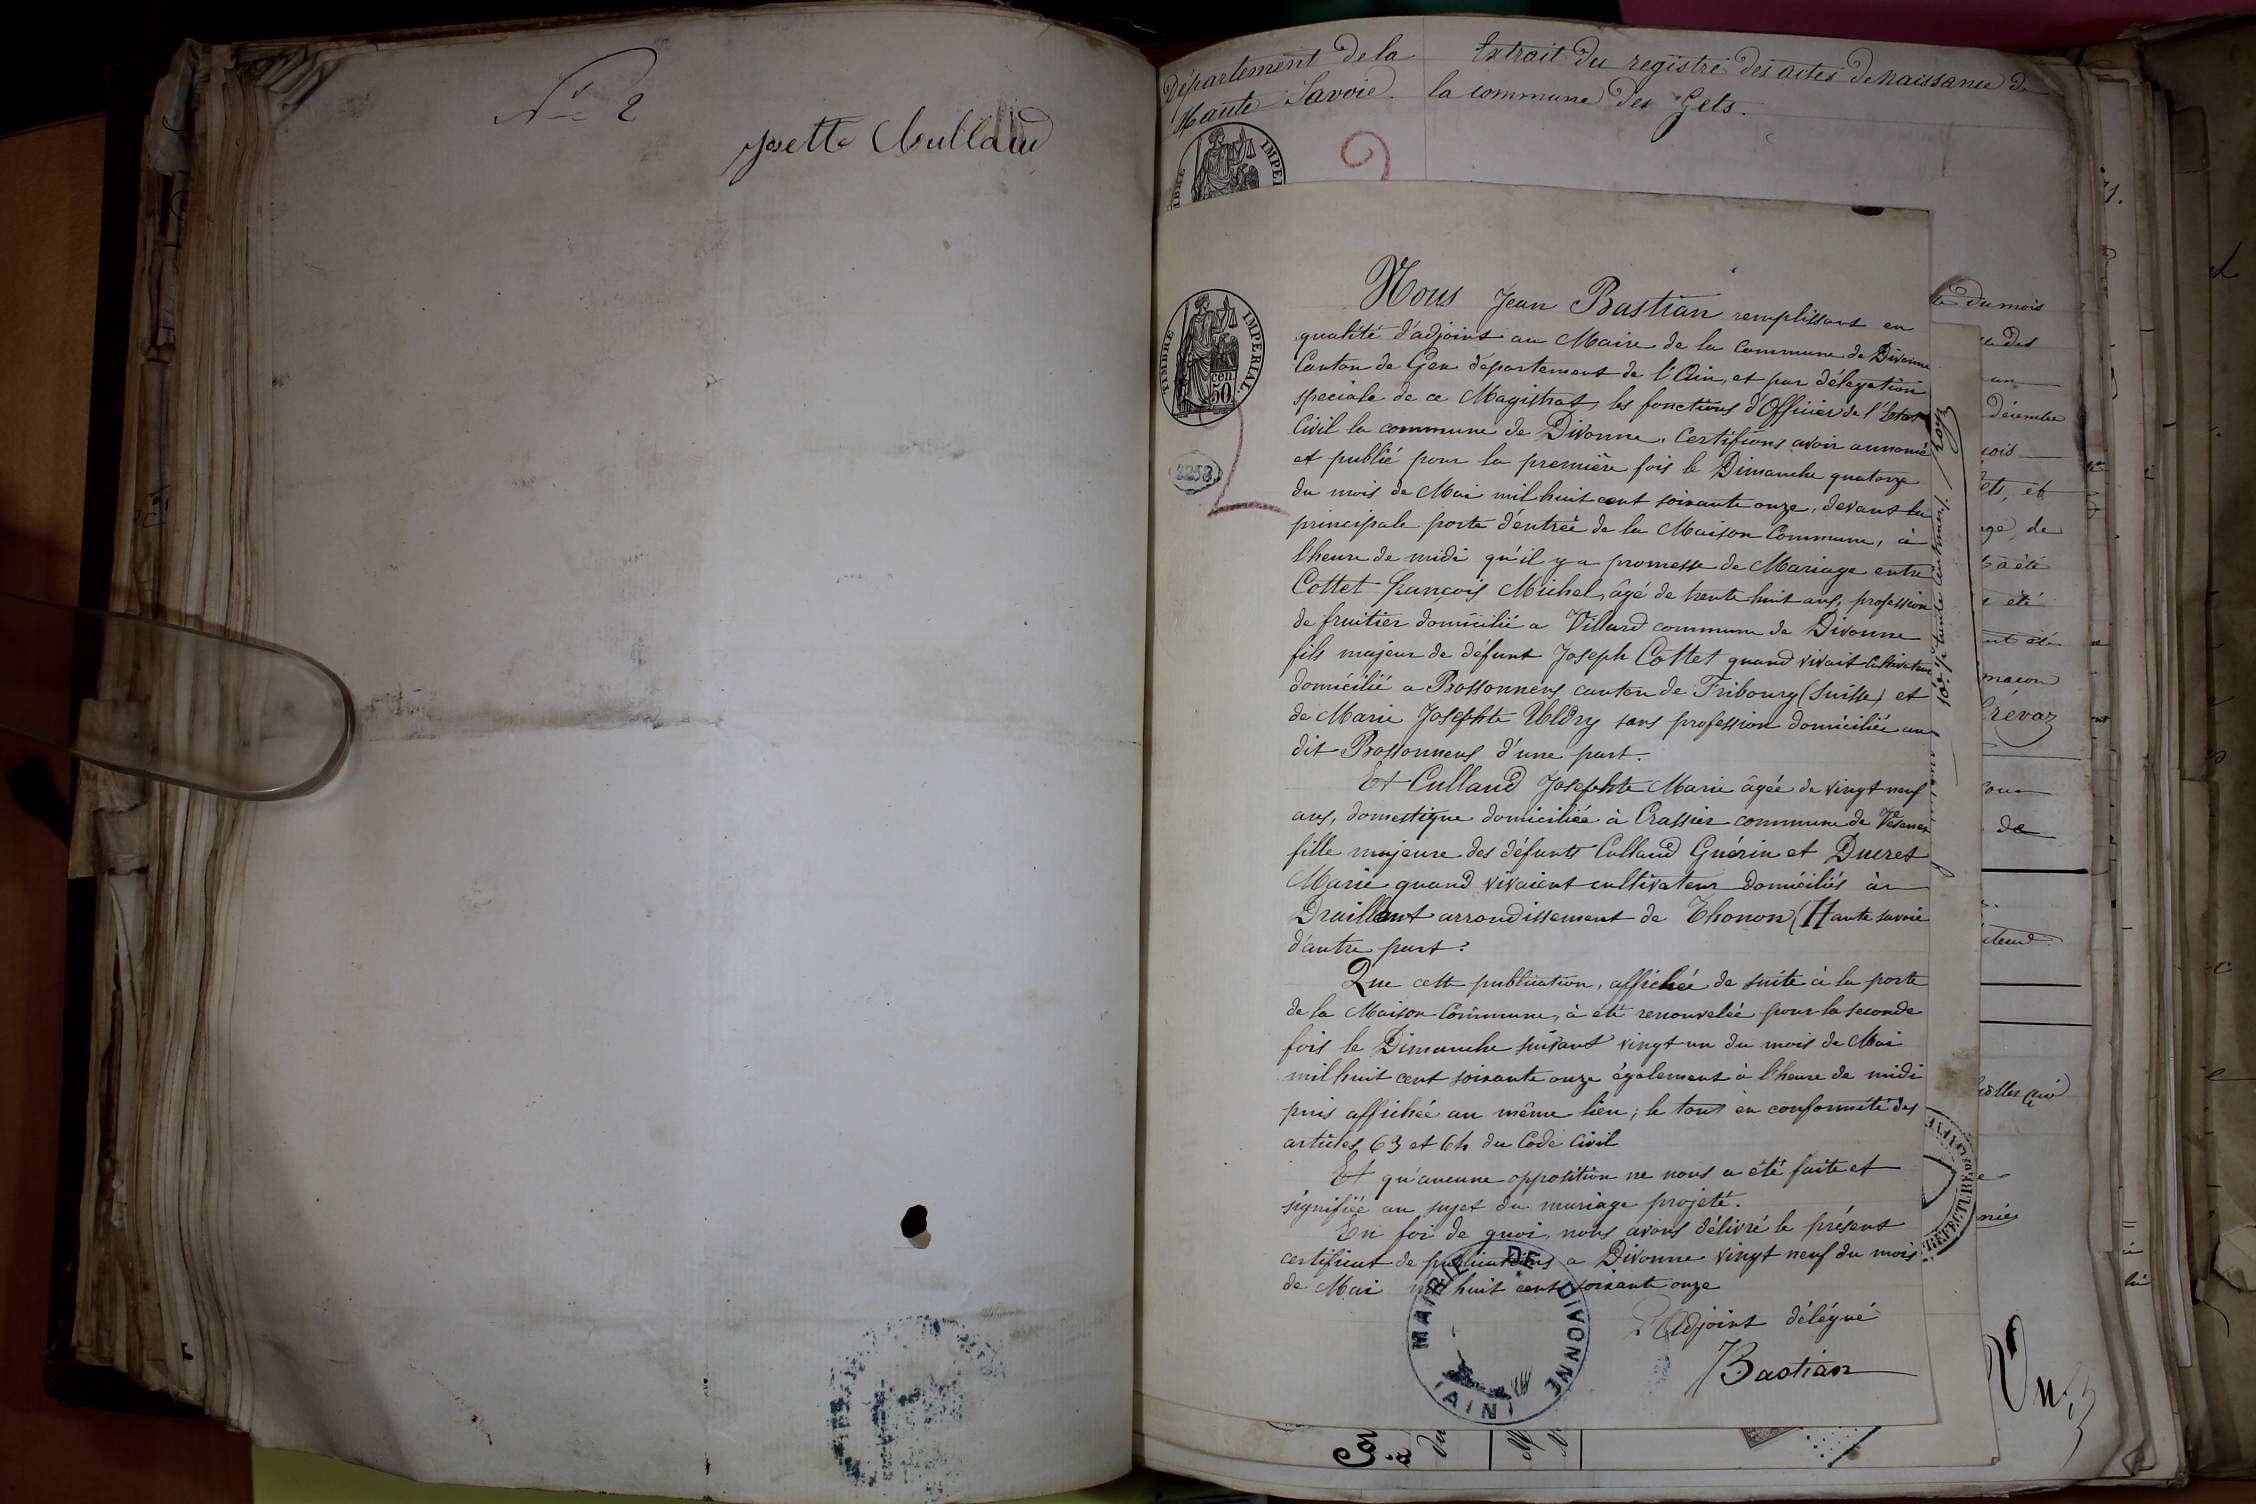 N° 2
Josette Cullaud
Département de la
Haute-Savoie.
Extrait du registre des actes de naissance de
la commune des Gets.
TIMBRE IMPERIAL
cen
50
2258
2
Nous Jean Bastian remplissant en
qualité d'adjoint au Maire de la Commune de Divonne
Canton de Gex département de l'Ain, et par délégation
speciale de ce Magistrat, les fonctions d'Officier de l'Etat
Civil la commune de Divonne, Certifions avoir annoncé
et publié pour la première fois le Dimanche quatorze
du mois de Mai mil huit cent soixante onze, devant la
principale porte d'entrée de la Maison Commune, à
l'heure de midi qu'il y a promesse de Mariage entre
Cottet François Michel, âgé de trente huit ans, profession
de fruitier domicilié a Villard commune de Divonne
fils majeur de défunt Joseph Cottet quand vivait Cultivateur
domicilié a Bossonnens canton de Fribourg (Suisse) et
de Marie Josephte Uldry sans profession domiciliée au
dit Bossonnens d'une part.
Et Culland Josephte Marie âgée de vingt neuf
ans, domestique domiciliée à Crassier commune de Vesenex
fille majeure des défunts Culland Guérin et Ducret
Marie quand vivaient cultivateur domiciliés à
Draillant arrondissement de Thonon (Haute savoie
d'autre part.
Que cette publication, affichée de suite à la porte
de la Maison Commune, à été renouvelée pour la seconde
fois le Dimanche suivant vingt un du mois de Mai
mil huit cent soixante onze également à l'heure de midi
puis affichée au même lieu; le tout en conformité des
articles 63 et 64 du Code Civil
Et qu'aucune opposition ne nous a été faite et
signifiée au sujet du mariage projeté.
En foi de quoi, nous avons délivré le présent
certificat de publications a Divonne vingt neuf du mois
de Mai mil huit cent soixante onze
L'Adjoint délégué
Bastian
MAIRIE DE DIVONNE
(AIN)
du mois
des
un
décembre
ets, et
de
a été
été
maçon
Prévaz
de
PRÉFECTURE